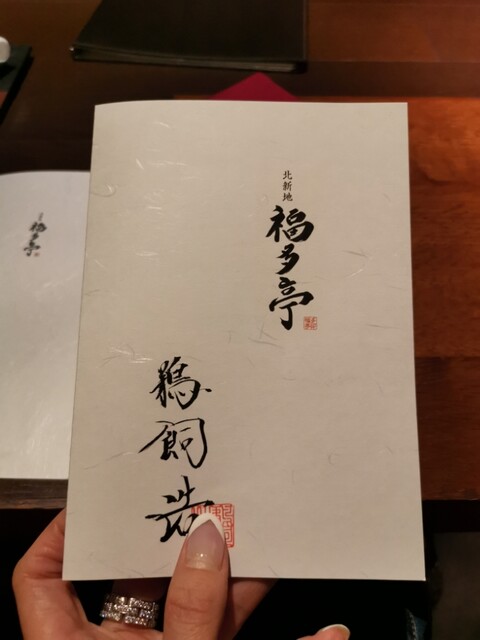 北新地
福多亭
鵜飼浩
福多亭